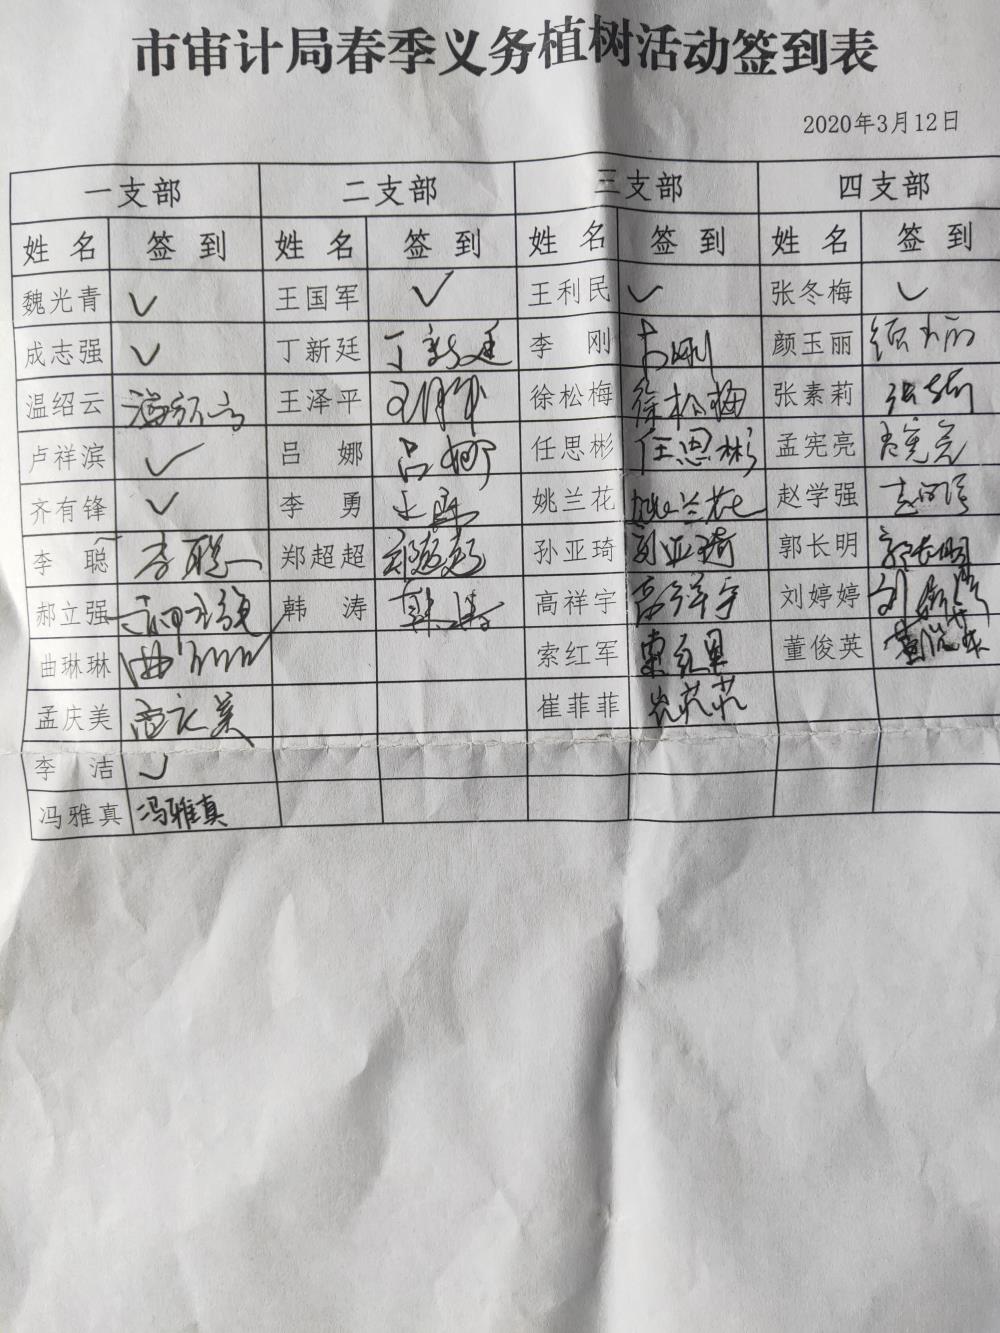 市审计局春季义务植树活动签到表
2020年3月12日
一支部 二支部 三支部 四支部
姓名 签到 姓名 签到 姓名 签到 姓名 签到
魏光青 ✓ 王国军 ✓ 王利民 ✓ 张冬梅 ✓
成志强 ✓ 丁新廷 丁新廷 李刚 李刚 颜玉丽 颜玉丽
温绍云 温绍云 王泽平 徐松梅 徐松梅 张素莉 张素莉
卢祥滨 ✓ 吕娜 吕娜 任思彬 任思彬 孟宪亮 孟宪亮
齐有锋 ✓ 李勇 姚兰花 姚兰花 赵学强
李聪 李聪 郑超超 郑超超 孙亚琦 孙亚琦 郭长明 郭长明
郝立强 郝立强 韩涛 韩涛 高祥宇 高祥宇 刘婷婷 刘婷婷
曲琳琳 曲琳琳 索红军 索红军 董俊英 董俊英
孟庆美 孟庆美 崔菲菲 崔菲菲
李洁 ✓
冯雅真 冯雅真